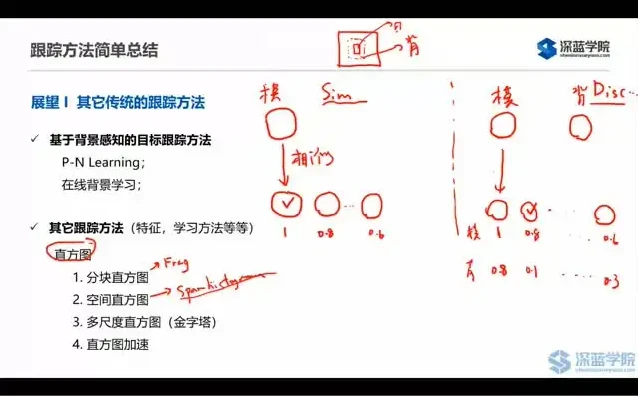 跟踪方法简单总结
深蓝学院
目
背
展望 I 其它传统的跟踪方法
✓ 基于背景感知的目标跟踪方法
P-N Learning;
在线背景学习;
✓ 其它跟踪方法（特征，学习方法等等）
直方图
1. 分块直方图
Frag
2. 空间直方图
3. 多尺度直方图（金字塔）
4. 直方图加速
模 Sim
相似
1 0.8 0.6
模 背 Disc...
模 1 0.8 0.6
背 0.8 0.1 ..... 0.3
深蓝学院